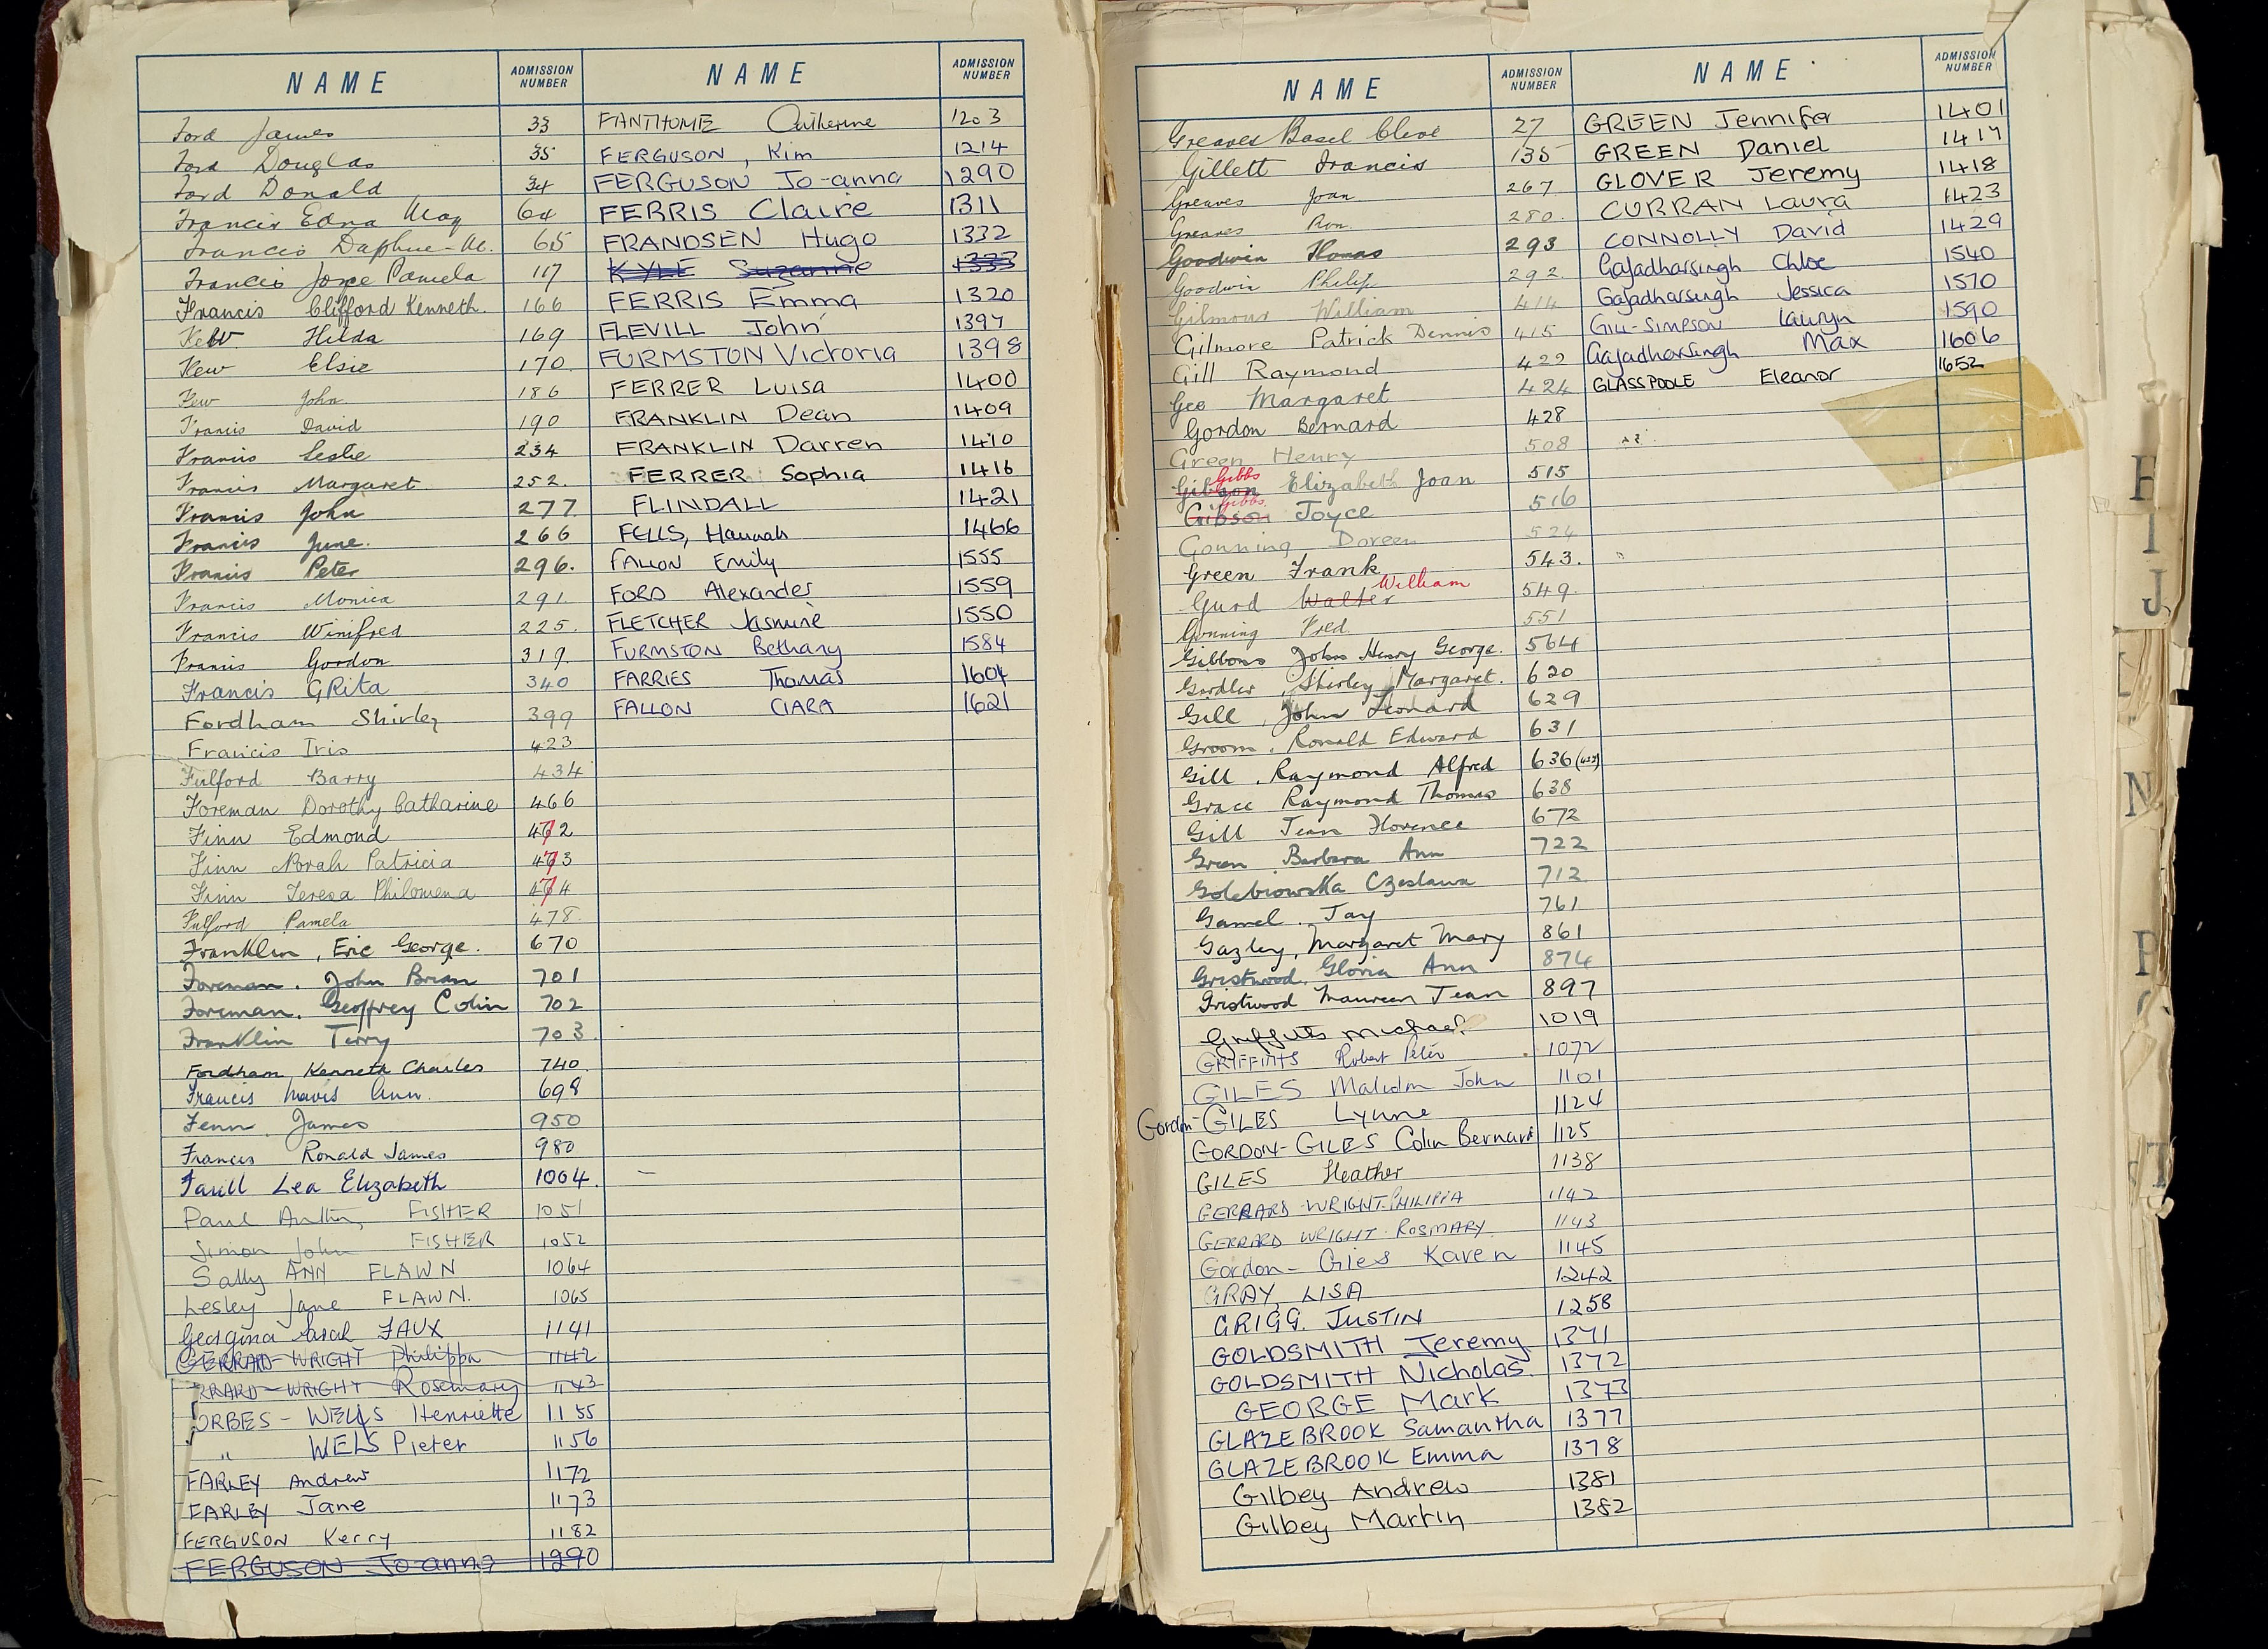 NAME ADMISSION NUMBER
Ford James 33
Ford Douglas 35
Ford Donald 34
Francis Edna May 64
Francis Daphne M. 65
Francis Joyce Pamela 117
Francis Clifford Kenneth. 166
Kew Hilda 169
Kew Elsie 170
Kew John 186
Francis David 190
Francis Leslie 234
Francis Margaret 252.
Francis John 277
Francis June. 266
Francis Peter 296.
Francis Monica 291
Francis Winifred 225.
Francis Gordon 319
Francis G Rita 340
Fordham Shirley 399
Francis Iris 423
Fulford Barry 434
Foreman Dorothy Catharine 466
Finn Edmond 472
Finn Norah Patricia 473
Finn Teresa Philomena 474
Fulford Pamela 478
Franklin, Eric George. 670
Foreman. John Brian 701
Foreman. Geoffrey Colin 702
Franklin Terry 703
Fordham Kenneth Charles 740
Francis Mavis Ann. 698
Fenn. James 950
Francis Ronald James 980
Farill Lea Elizabeth 1004.
Paul FISHER 1051
Simon John FISHER 1052
Sally ANN FLAWN 1064
Lesley Jane FLAWN. 1065
Georgina Sarah FAUX 1141
GERRARD-WRIGHT Philippa 1142
RRARD-WRIGHT Rosemary 1143
ORBES-WELLS Henriette 1155
" WELS Pieter 1156
FARLEY Andrew 1172
FARLEY Jane 1173
FERGUSON Kerry 1182
FERGUSON Jo-anna 1290
NAME ADMISSION NUMBER
FANTHOME Catherine 1203
FERGUSON, Kim 1214
FERGUSON Jo-anna 1290
FERRIS Claire 1311
FRANDSEN Hugo 1332
KYLE Suzanne 1333
FERRIS Emma 1320
FLEVILL John 1397
FURMSTON Victoria 1398
FERRER Luisa 1400
FRANKLIN Dean 1409
FRANKLIN Darren 1410
FERRER Sophia 1416
FLINDALL 1421
FELLS, Hannah 1466
FALLON Emily 1555
FORD Alexander 1559
FLETCHER Jasmine 1550
FURMSTON Bethany 1584
FARRIES Thomas 1604
FALLON CIARA 1621
NAME ADMISSION NUMBER
Greaves Basel Clive 27
Gillett Francis 135
Greaves Joan 267
Greaves Ron 280.
Goodwin Thomas 293
Goodwin Philip 292.
Gilmour William 414
Gilmore Patrick Dennis 415
Gill Raymond 422
Gee Margaret 424
Gordon Bernard 428
Green Henry 508
Gibson Gibbs Elizabeth Joan 515
Gibson Gibbs Joyce 516
Gonning Doreen 524
Green Frank 543.
Gurd Walter William 549.
Gonning Fred. 551
Gibbons John Henry George. 564
Gordler, Shirley Margaret. 620
Gill, John Leonard 629
Groom. Ronald Edward 631
Gill, Raymond Alfred 636 (422)
Grace Raymond Thomas 638
Gill Jean Florence 672
Green Barbara Ann 722
Golebiowska Czeslawa 712
Gamel. Jay 761
Gazley, Margaret Mary 861
Gristwood, Gloria Ann 874
Gristwood Maureen Jean 897
Griffiths Michael 1019
GRIFFITHS Robert Peter 1072
GILES Malcolm John 1101
Gordon-GILES Lynne 1124
GORDON-GILES Colin Bernard 1125
GILES Heather 1138
GERRARD-WRIGHT PHILIPPA 1142
GERRARD WRIGHT ROSMARY 1143
Gordon-Gies Karen 1145
GRAY, LISA 1242
GRIGG. JUSTIN 1258
GOLDSMITH Jeremy 1371
GOLDSMITH Nicholas 1372
GEORGE Mark 1373
GLAZEBROOK Samantha 1377
GLAZEBROOK Emma 1378
Gilbey Andrew 1381
Gilbey Martin 1382
NAME ADMISSION NUMBER
GREEN Jennifer 1401
GREEN Daniel 1417
GLOVER Jeremy 1418
CURRAN Laura 1423
CONNOLLY David 1429
Gajadharsingh Chloe 1540
Gajadharsingh Jessica 1570
Gill-SIMPSON Lauryn 1590
Gajadharsingh Max 1606
GLASSPOOLE Eleanor 1652
H
I
J
N
P
T